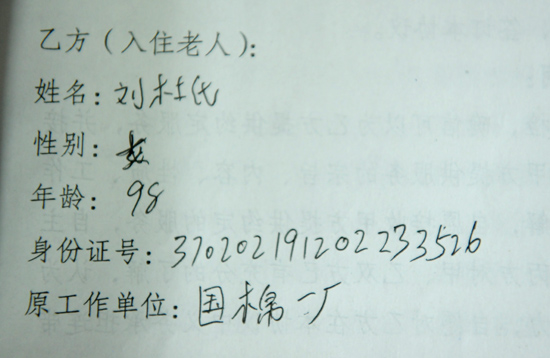 乙方（入住老人）：
姓名：刘杜氏
性别：女
年龄：98
身份证号：370202191202233526
原工作单位：国棉一厂